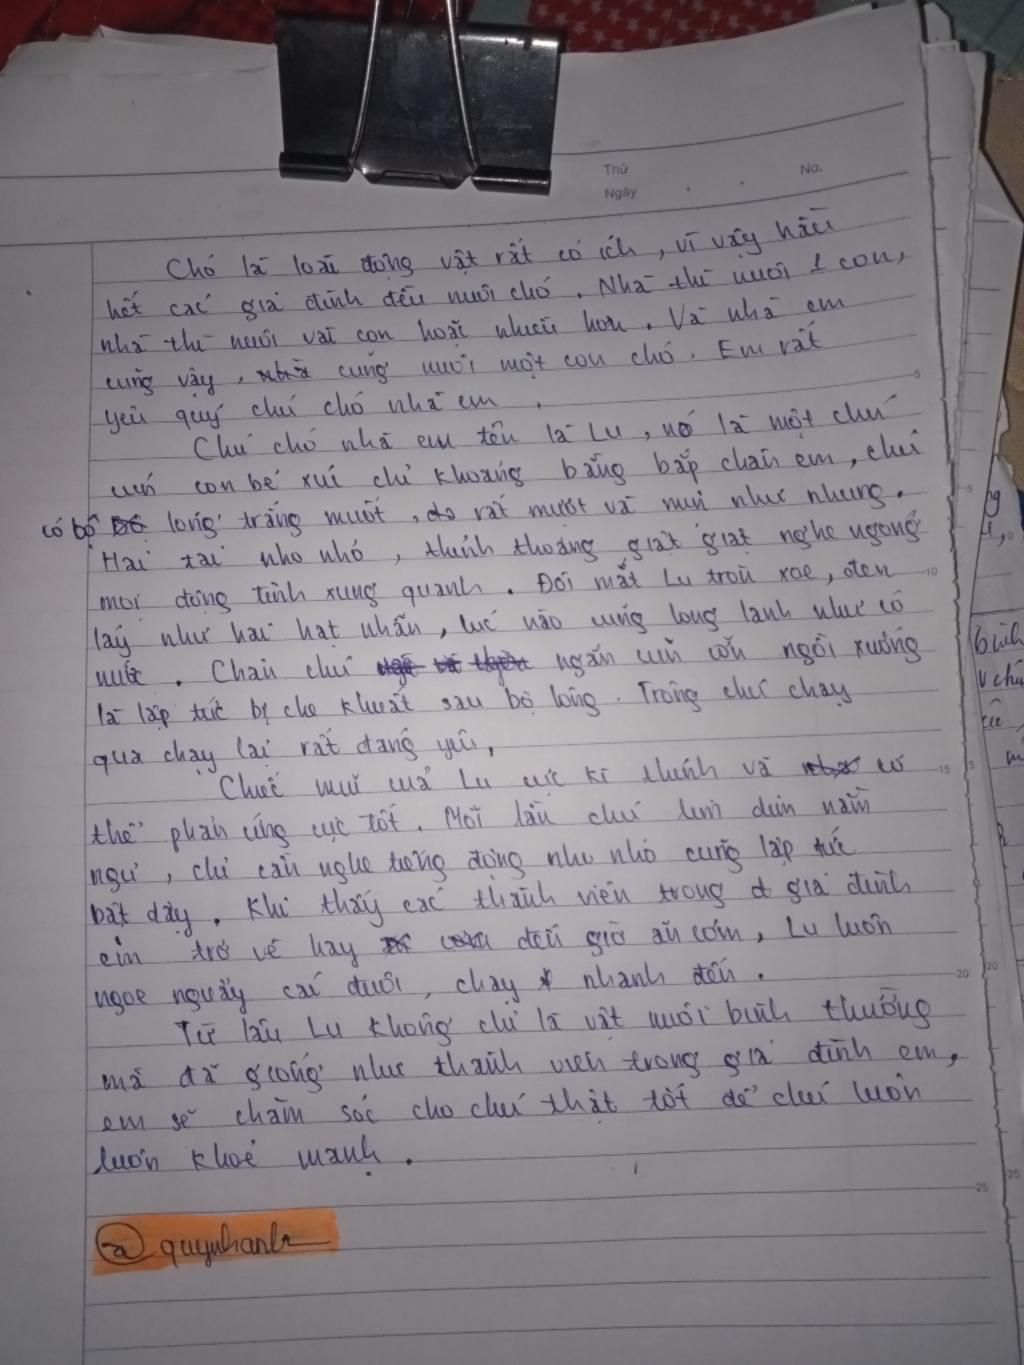 Thứ
No.
Ngày
Chó là loài động vật rất có ích, vì vậy hầu
hết các gia đình đều nuôi chó. Nhà thì nuôi 1 con,
nhà thì nuôi vài con hoặc nhiều hơn. Và nhà em
cũng vậy, cũng nuôi một con chó. Em rất
yêu quý chú chó nhà em.
Chú chó nhà em tên là Lu, nó là một chú
cún con bé xíu chỉ khoảng bằng bắp chân em, chú
có bộ lông trắng muốt, rất mượt và mịn như nhung.
Hai tai nho nhỏ, thỉnh thoảng giật giật nghe ngóng
mọi động tĩnh xung quanh. Đôi mắt Lu tròn xoe, đen
láy như hai hạt nhãn, lúc nào cũng long lanh như có
nước. Chân chú ngắn cũn cỡn ngồi xuống
là lập tức bị che khuất sau bộ lông. Trông chú chạy
qua chạy lại rất đáng yêu,
Chiếc mũi của Lu cực kì thính và có
thể phản ứng cực tốt. Mỗi lần chú lim dim nằm
ngủ, chỉ cần nghe tiếng động nho nhỏ cũng lập tức
bật dậy. Khi thấy các thành viên trong gia đình
em trở về hay đến giờ ăn cơm, Lu luôn
ngoe nguẩy cái đuôi, chạy nhanh đến.
Từ lâu Lu không chỉ là vật nuôi bình thường
mà đã giống như thành viên trong gia đình em,
em sẽ chăm sóc cho chú thật tốt để chú luôn
luôn khoẻ mạnh.
@quynhanh